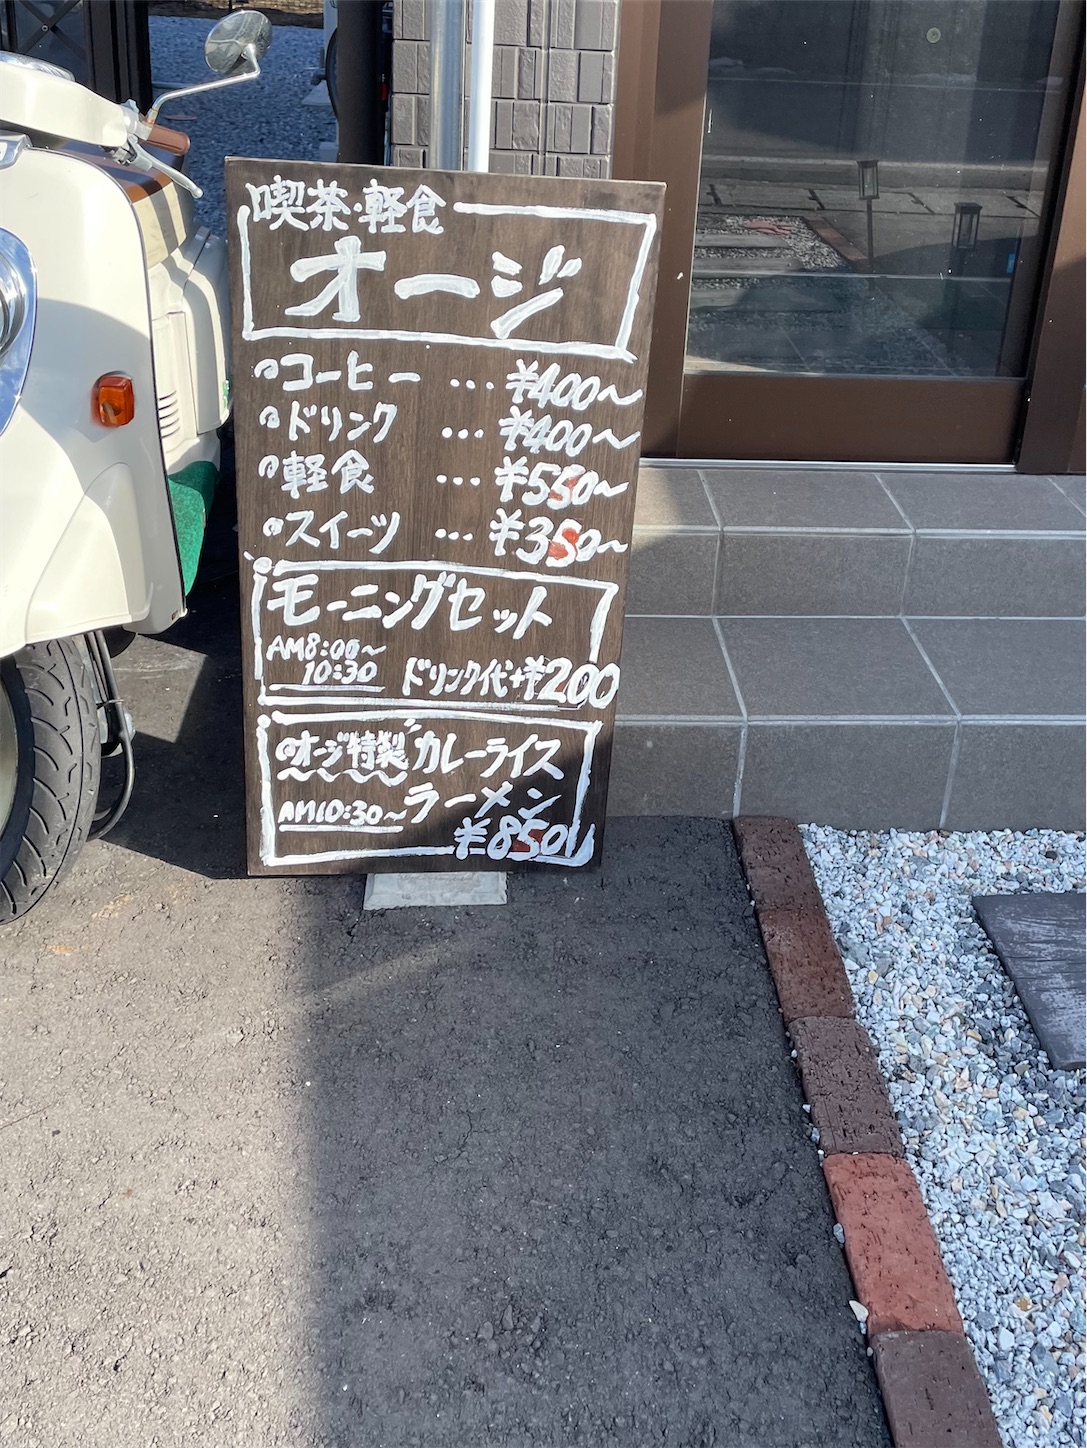 喫茶・軽食
オージ
コーヒー … ¥400〜
ドリンク … ¥400〜
軽食 … ¥550〜
スイーツ … ¥350〜
モーニングセット
AM8:00〜
10:30 ドリンク代+¥200
オージ特製 カレーライス
AM10:30〜 ラーメン
¥850〜